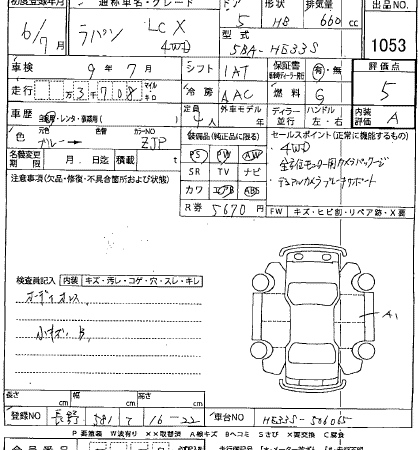 初度登録年月 通称車名・グレード ドア 形状 排気量 出品NO
6/7月 ラパン LC X 4WD 5 HB 660 cc
型式 5BA-HE33S 1053
車検 9年7月 シフト IAT 保証書 有・無 評価点
走行 万3千708 マイル キロ 冷房 AAC 燃料 G 5
車歴 自家・レンタ・事業用( ) 定員 4人 外車モデル 年 ディーラー 並行 ハンドル 左・右 内装評価 A
色 元色 ブルー → カラーNO ZJP 装備品(純正品に限る) セールスポイント(正常に機能するもの)
名義変更期限 月 日迄 積載 t PS PW AW ・4WD
注意事項(欠品・修復・不具合箇所および状態) SR TV ナビ ・全方位モニター用カメラパッケージ
カワ エアB ABS ・デュアルカメラブレーキサポート
R券 5670円 FW キズ・ヒビ割・リペア跡・X要
検査員記入 内装 キズ・汚レ・コゲ・穴・スレ・キレ
オーディオレス
小キズ、
A1
長さ cm 幅 cm 高さ cm
登録NO 長野 581 16-22 車台NO HE33S-506065
P要塗装 W波有り XX取替済 A線キズ Bヘコミ Sさび X要交換 C腐食